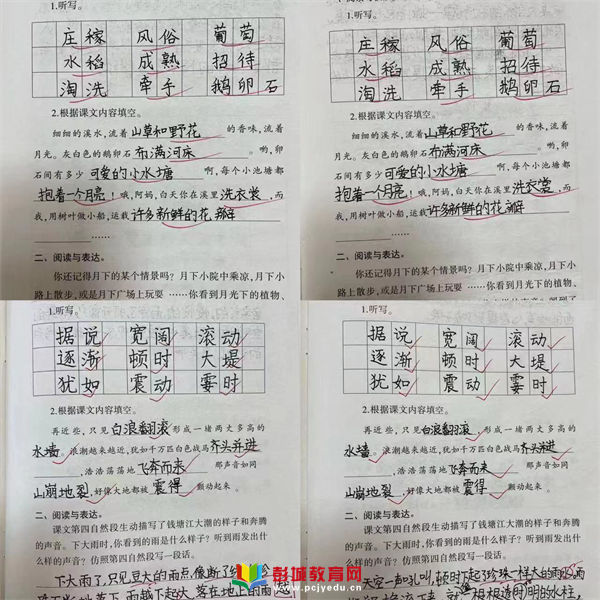 1.听写。
庄稼 风俗 葡萄
水稻 成熟 招待
淘洗 牵手 鹅卵石
2.根据课文内容填空。
细细的溪水,流着山草和野花的香味,流着
月光。灰白色的鹅卵石布满河床。哟,卵
石间有多少可爱的小水塘啊,每个小池塘都
抱着一个月亮!哦,阿妈,白天你在溪里洗衣裳,而
我,用树叶做小船,运载许多新鲜的花瓣
……
二、阅读与表达。
你还记得月下的某个情景吗?月下小院中乘凉,月下小
路上散步,或是月下广场上玩耍……你看到月光下的植物、
1.听写。
庄稼 风俗 葡萄
水稻 成熟 招待
淘洗 牵手 鹅卵石
2.根据课文内容填空。
细细的溪水,流着山草和野花的香味,流着
月光。灰白色的鹅卵石布满河床。哟,卵
石间有多少可爱的小水塘啊,每个小池塘都
抱着一个月亮!哦,阿妈,白天你在溪里洗衣裳,而
我,用树叶做小船,运载许多新鲜的花瓣
……
二、阅读与表达。
你还记得月下的某个情景吗?月下小院中乘凉,月下小
路上散步,或是月下广场上玩耍……你看到月光下的植物、
1.听写。
据说 宽阔 滚动
逐渐 顿时 大堤
犹如 震动 霎时
2.根据课文内容填空。
再近些,只见白浪翻滚,形成一堵两丈多高的
水墙。浪潮越来越近,犹如千万匹白色战马齐头并进
,浩浩荡荡地飞奔而来 那声音如同
山崩地裂,好像大地都被震得颤动起来。
二、阅读与表达。
课文第四自然段生动描写了钱塘江大潮的样子和奔腾
的声音。下大雨时,你看到的雨是什么样子?听到雨发出什
么样的声音?仿照第四自然段写一段话。
下大雨了,只见豆大的雨点,像断了线
1.听写。
据说 宽阔 滚动
逐渐 顿时 大堤
犹如 震动 霎时
2.根据课文内容填空。
再近些,只见白浪翻滚,形成一堵两丈多高的
水墙。浪潮越来越近,犹如千万匹白色战马齐头并进
,浩浩荡荡地飞奔而来 那声音如同
山崩地裂,好像大地都被震得颤动起来。
二、阅读与表达。
课文第四自然段生动描写了钱塘江大潮的样子和奔腾
的声音。下大雨时,你看到的雨是什么样子?听到雨发出什
么样的声音?仿照第四自然段写一段话。
天空一声吼叫,顿时下起珍珠一样大的雨
彭城教育网
www.pcjyedu.cn